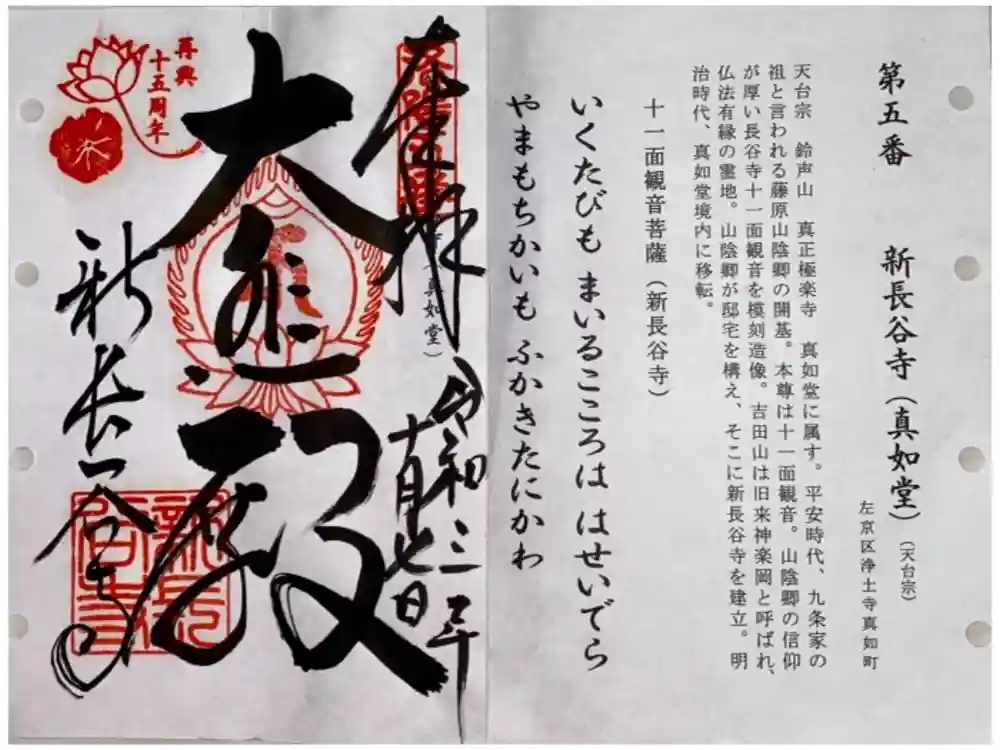 第五番 新長谷寺（真如堂）（天台宗）
左京区浄土寺真如町
天台宗 鈴声山 真正極楽寺 真如堂に属す。平安時代、九条家の
祖と言われる藤原山陰卿の開基。本尊は十一面観音。山陰卿の信仰
が厚い長谷寺十一面観音を模刻造像。吉田山は旧来神楽岡と呼ばれ、
仏法有縁の霊地。山陰卿が邸宅を構え、そこに新長谷寺を建立。明
治時代、真如堂境内に移転。
十一面観音菩薩（新長谷寺）
いくたびも まいるこころは はせいでら
やまもちかいも ふかきたにかわ
奉拝
（真如堂）
令和三年
十月七日
大悲殿
新長谷寺
再興
十五周年